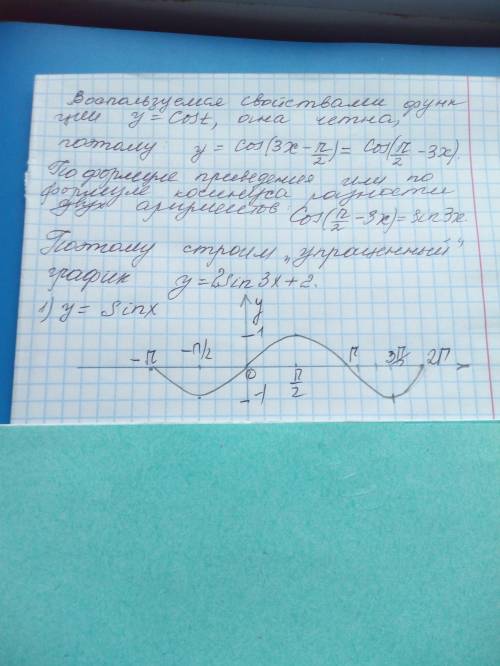 Воспользуемся свойствами функ
ции y = Cost, она четна,
поэтому y = Cos(3x - π/2) = Cos(π/2 - 3x).
По формуле приведения или по
формуле косинуса разности
двух аргументов Cos(π/2 - 3x) = Sin3x
Поэтому строим „упращенный“
график y = 2Sin3x + 2.
1) y = Sinx
y
1
-π -π/2 0 π/2 π 3π/2 2π x
-1